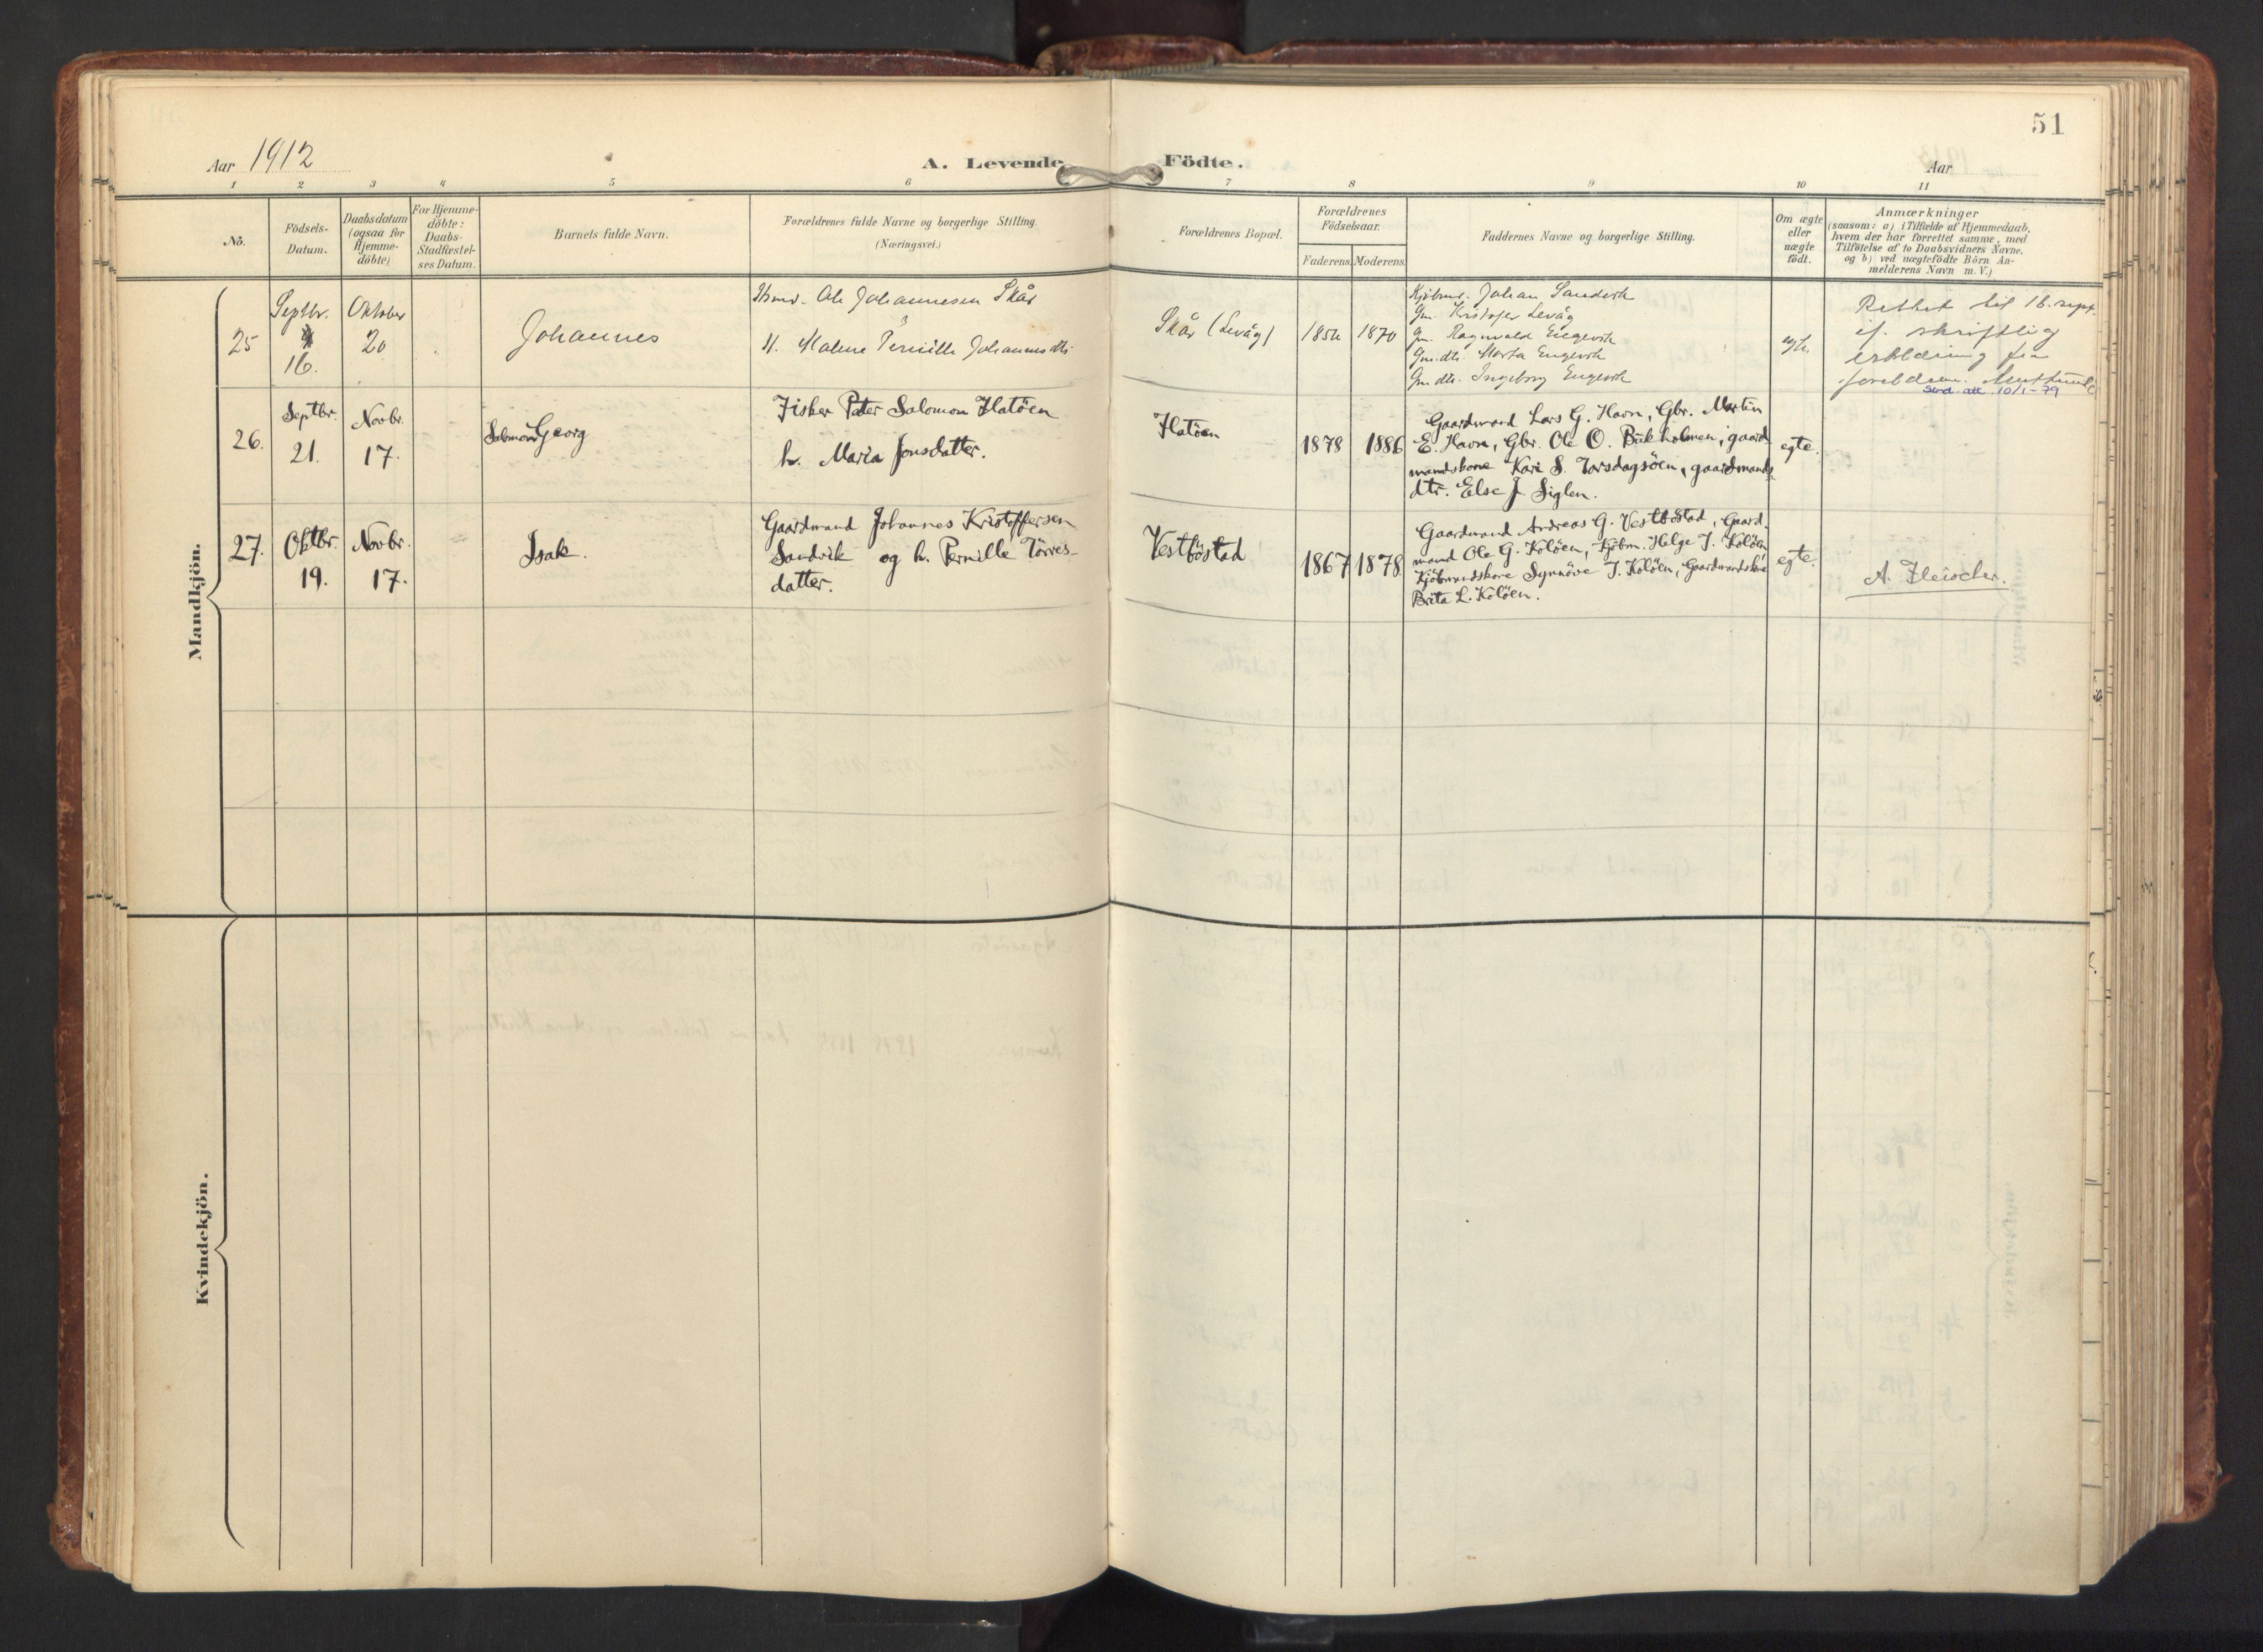 51
Aar 1912
A. Levende
Födte.
Aar
1 2 3 4 5 6 7 8 9 10 11
No.
Födsels-
Datum.
Daabsdatum
(ogsaa for
Hjemme-
döbte)
For Hjemme-
döbte:
Daabs-
Stadfæstel-
ses Datum.
Barnets fulde Navn.
Forældrenes fulde Navne og borgerlige Stilling.
(Næringsvei.)
Forældrenes Bopæl.
Forældrenes
Födselsaar.
Faderens. Moderens.
Faddernes Navne og borgerlige Stilling.
Om ægte
eller
uægte
födt.
Anmærkninger
(saasom: a) i Tilfælde af Hjemmedaab,
hvem der har forrettet samme, med
Tilföielse af to Daabsvidners Navne,
og b) ved uægtefödte Börn An-
melderens Navn m. V.)
Mandkjön.
25
Septbr.
16.
Oktober
20
Johannes
Ole Johannesen Skår
H. Malene Pernille Johannesdtr.
Skår (Levåg)
1854
1870
Kjöbmd. Johan Sandvik
Gm. Kristofer Levåg
Gm. Ragnvald Engevik
Gm.dtr. Marta Engevik
Gm.dtr. Ingeborg Engevik
egte.
Rettet til 16. sept.
if. skriftlig
erklæring fra
foreldrene.
Send. att. 10/1-79
26.
Septbr.
21.
Novbr.
17.
Salomon Georg
Fisker Peter Salomon Flatöen
h. Maria Jonsdatter.
Flatöen
1878
1886
Gaardmand Lars G. Havn, Gbr. Martin
E. Havn, Gbr. Ole O. Birkholmen, gaard
mandskone Kari S. Torsdagsöen, gaardmands
dtr. Else J. Siglen.
egte.
27.
Oktbr.
19.
Novbr.
17.
Isak.
Gaardmand Johannes Kristoffersen
Sandvik og h. Pernille Törres-
datter.
Vestböstad
1867
1878.
Gaardmand Andreas G. Vestböstad, Gaard
mand Ole G. Kolöen, Kjöbm. Helge J. Kolöen
Kjöbmandskone Synnöve J. Kolöen, Gaardmandskone
Brita L. Kolöen.
egte.
A. Fleischer.
Kvindekjön.